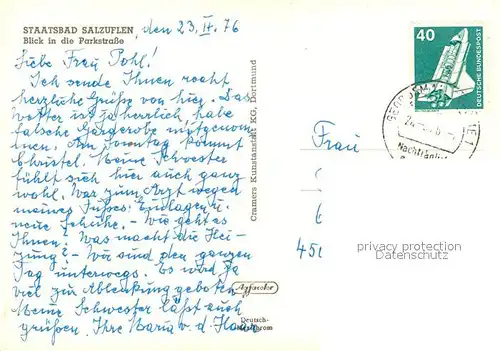 STAATSBAD SALZUFLEN, den 23. IV. 76
Blick in die Parkstraße
Liebe Frau Pohl!
Ich sende Ihnen recht
herzliche Grüße von hier. Das
Wetter ist ja herrlich, habe
falsche Garderobe mitgenom-
men. Am Sonntag kommt
Christel. Meine Schwester
fühlt sich hier auch ganz
wohl. War zum Arzt wegen
meines Fußes: Einlagen u.
neue Schuhe. - Wie geht es
Ihnen? Was macht die Hei-
zung? - Wir sind den ganzen
Tag unterwegs. Es wird ja
viel zur Ablenkung geboten.
Meine Schwester läßt auch
grüßen. Ihre Maria v. d.
Cramers Kunstanstalt KG, Dortmund
Agfacolor
Deutsch-
40
DEUTSCHE BUNDESPOST
Nachträglich
Frau
45
privacy protection
Datenschutz